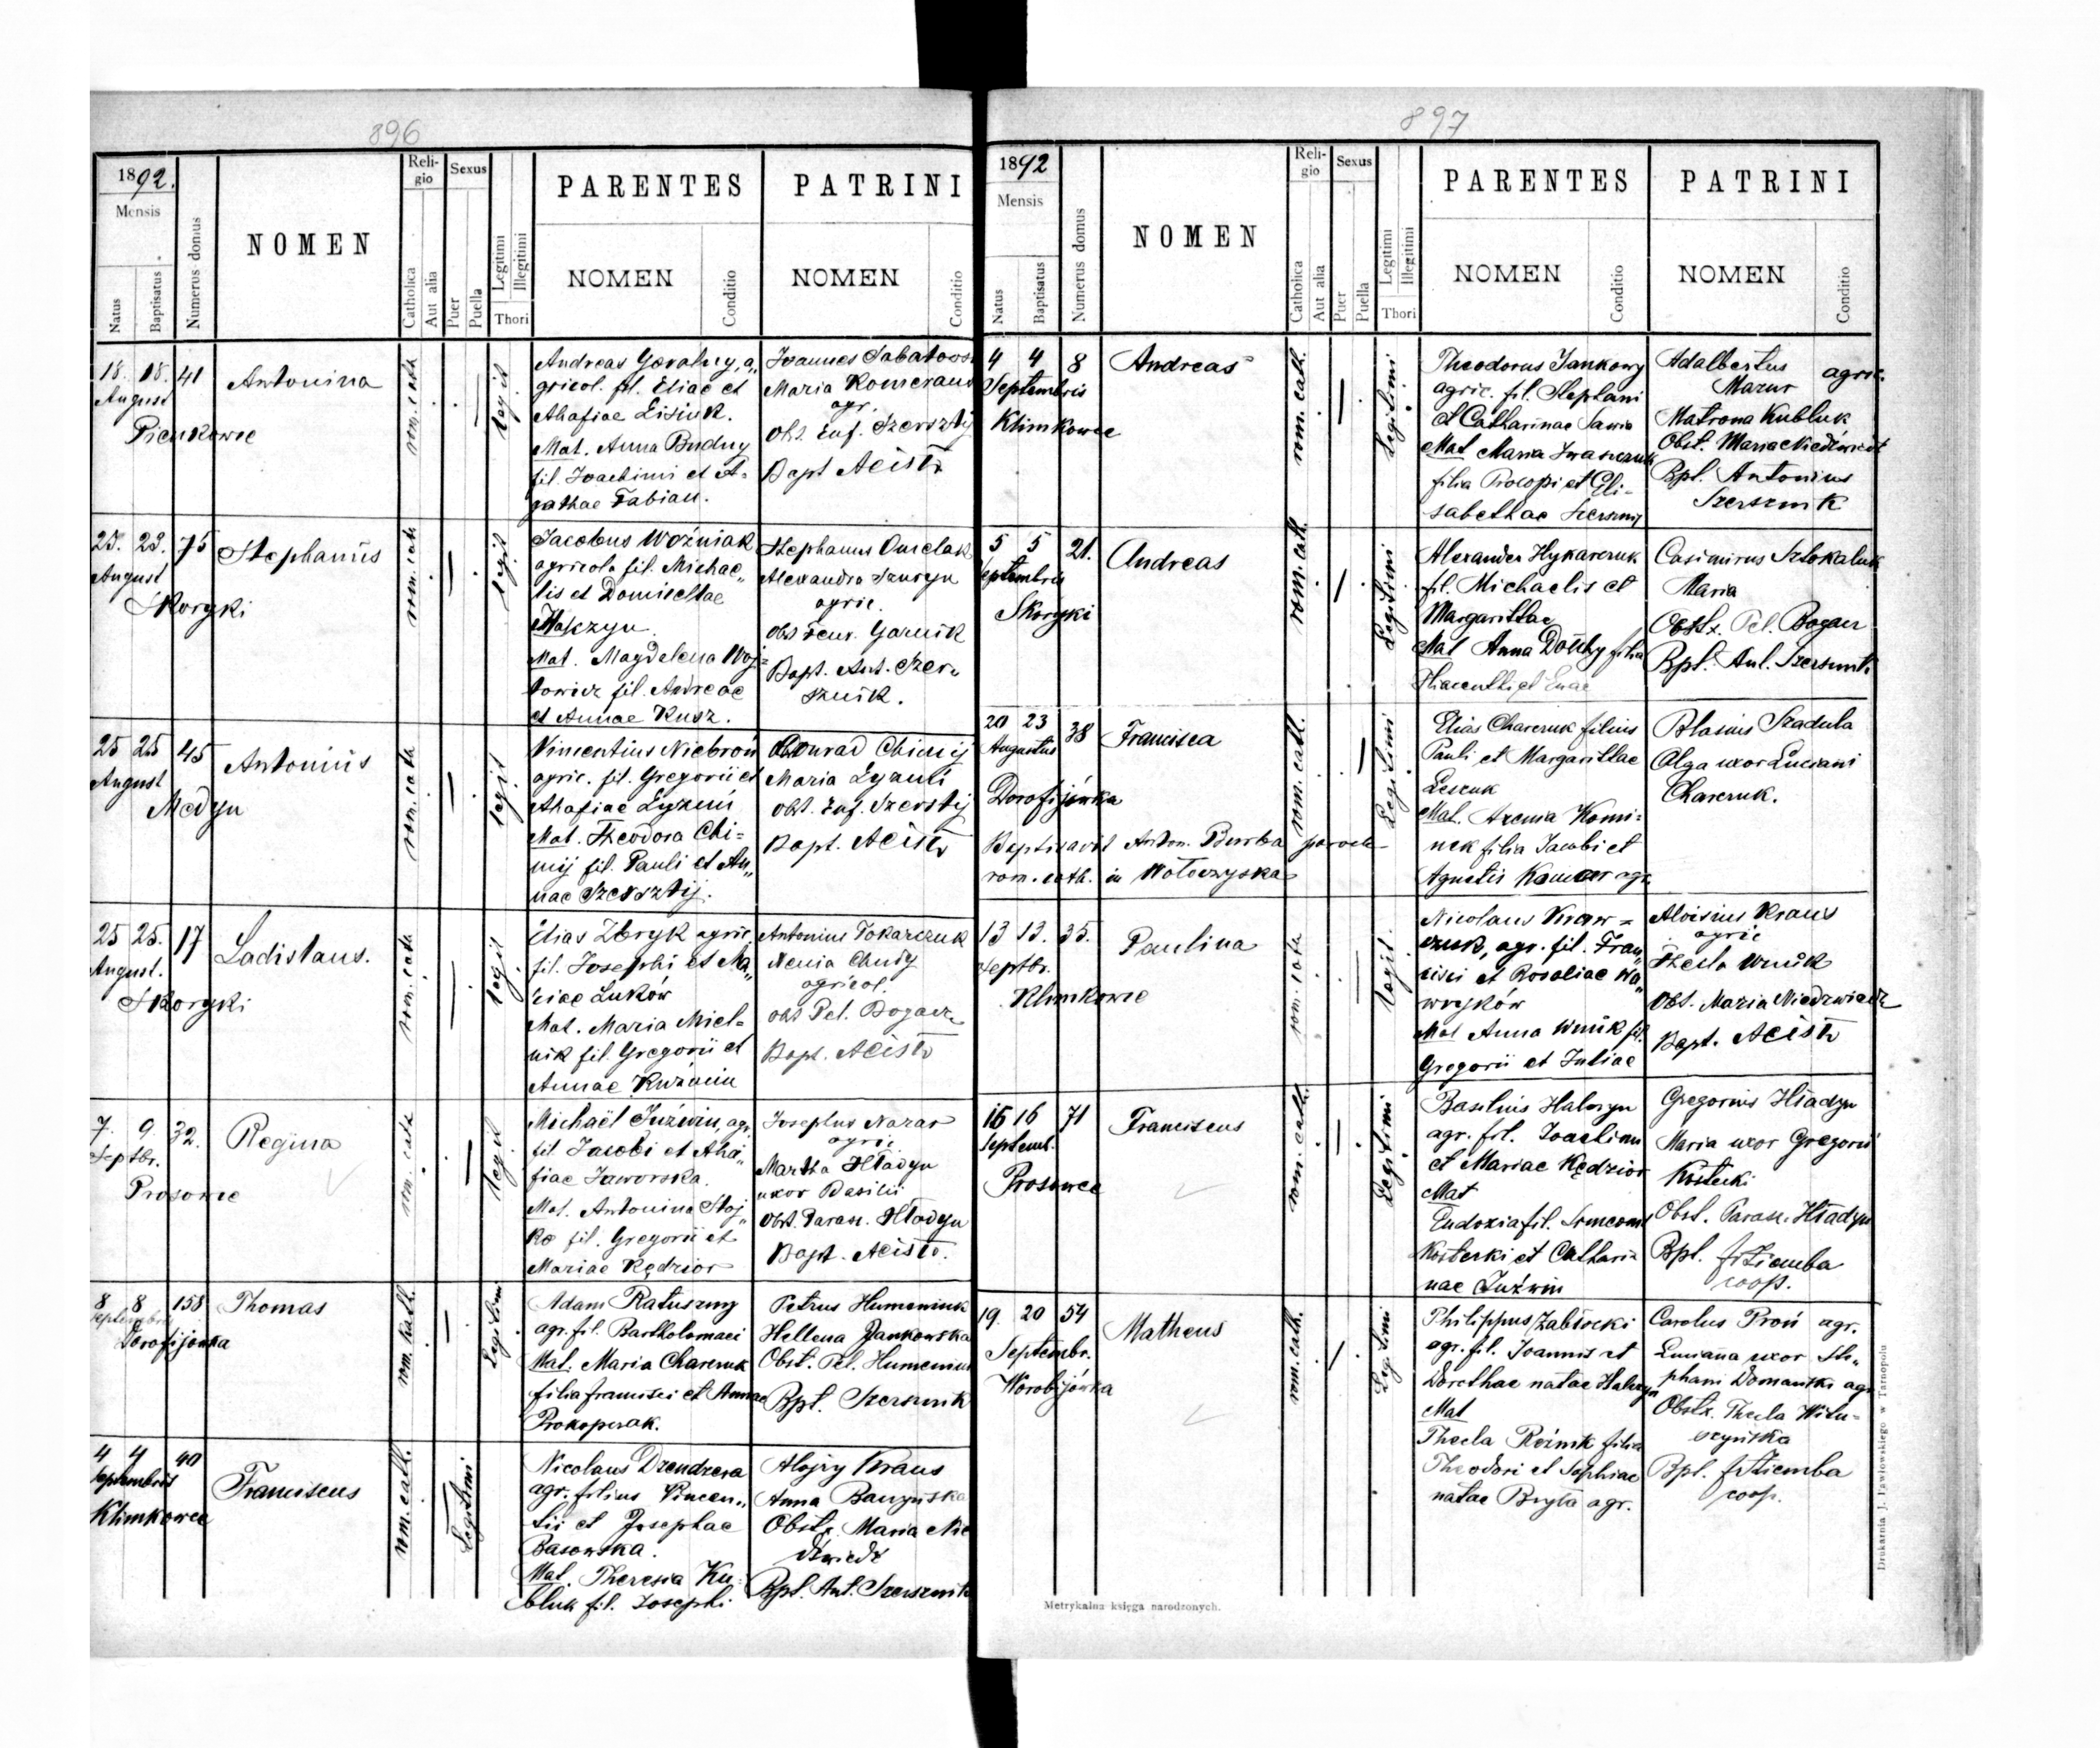 896
1892.
Mensis
Natus
Baptisatus
Numerus domus
NOMEN
Religio
Catholica
Aut alia
Sexus
Puer
Puella
Legitimi
Illegitimi
Thori
PARENTES
NOMEN
Conditio
PATRINI
NOMEN
Conditio
18. 18. 41
August
Pienkowce
Antonina
rom. cath
legit
Andreas Goralny, a„
gricol. fil. Eliae et
Ahafiae Lisiuk.
Mat. Anna Budny
fil. Joachimi et A-
gathae Fabian.
Joannes
Maria
agr.
Obs. Euf.
Bapt Aeisto
23. 23. 75
August
Skoryki
Stephanus
rom. cath
legit
Jacobus Woźniak
agricola fil. Michae„
lis et Domicellae
Mat. Magdalena Woj-
towicz fil. Andreae
et Annae Kusz.
Stephanus
Alexandra
agric.
Obs
Bapt. Ant. Szer„
sznik.
25 25 45
August
Medyn
Antonius
rom. cath
legit
Vincentius Niebroń
agric. fil. Gregorii et
Ahafiae
Mat. Theodora Chi-
mij fil. Pauli et An„
nae Szersztij.
Conrad Chimij
Maria
Obs. Euf. Szersztij
Bapt. Aeisto
25 25. 17
August.
Skoryki
Ladislaus.
rom. cath
legit
Elias Zbryk agric.
fil. Josephi et Ma„
riae Luków
Mat. Maria Miel-
nik fil. Gregorii et
Annae
Antonius Tokarczuk
agricol.
Obs Pel. Bogacz
Bapt. Aeisto
7. 9. 32.
Septbr.
Prosowce
Regina
rom. cath
legit
Michaël Juźwin, agr.
fil. Jacobi et Aha„
fiae Jaworska.
Mat. Antonina Stoj„
ko fil. Gregorii et
Mariae Kędzior
Josephus Nazar
agric
Martha Hładyn
uxor Basilii
Obst. Parasc. Hładyn
Bapt. Aeisto.
8 8 158
Septembris
Dorofijówka
Thomas
rom. kath.
Legitimi
Adam Ratuszny
agr. fil. Bartholomaei
Mat. Maria Charczuk
filia Francisci et Annae
Prokopczak.
Petrus Humeniuk
Hellena Jankowska
Obst. Pel. Humeniuk
Bpt. Szersznik
4 4 40
Septembris
Klimkowce
Franciscus
rom. cath.
Legitimi
Nicolaus Dzendzera
agr. filius Vincen„
tii et Josephae
Basowska.
Mat. Theresia Ku-
bluk fil. Josephi
Alojzy Kraus
Anna
Obstx. Maria Nie
dźwiedź
Bpt. Ant. Szersznik
897
1892
Mensis
Natus
Baptisatus
Numerus domus
NOMEN
Religio
Catholica
Aut alia
Sexus
Puer
Puella
Legitimi
Illegitimi
Thori
PARENTES
NOMEN
Conditio
PATRINI
NOMEN
Conditio
4 4 8
Septembris
Klimkowce
Andreas
rom. cath.
Legitimi
Theodorus Jankowy
agric. fil. Stephani
et Catharinae Sawia
Mat Maria Iwaszczuk
filia Procopi et Eli-
sabethae
Adalbertus agric.
Mazur
Matrona Kubluk
Obst. Maria Niedźwiedź
Bpt. Antonius
Szersznik
5 5 21.
Septembris
Skoryki
Andreas
rom. cath.
Legitimi
Alexander Hykarczuk
fil. Michaelis et
Margarithae
Mat Anna filia
Hiacenthi et
Casimirus
Maria
Obstx. Pel. Bogacz
Bpt. Ant. Szersznik
20 23 38
Augustus
Dorofijówka
Francisca
rom. cath.
Legitimi
Elias Charczuk filius
Pauli et Margarithae
Leszuk
Mat. Komi-
nek filia Jacobi et
Agnetis agr.
Blasius Szadula
Olga uxor Luciani
Charczuk.
Baptisavit Anton. Burba paroch-
rom. cath. in Wołoczyska
13 13. 35.
Septbr.
Klimkowce
Paulina
rom. cath
legit.
Nicolaus Kraw-
czuk, agr. fil. Fran„
cisci et Rosaliae Wa„
wryków
Mat Anna Wnuk fil.
Gregorii et Juliae
Aloisius Kraus
agric
Thecla Wnuk
Obst. Maria Niedzwiedz
Bapt. Aeisto
16 16 71
Septemb.
Prosowce
Franciscus
rom. cath.
Legitimi
Basilius Haluszyn
agr. fil. Joachimi
et Mariae Kędzior
Mat
Eudoxia fil. Simeonis
Kostecki et Cathari-
nae Juźwin
Gregorius Hładyn
Maria uxor Gregorii
Kostecki
Obst. Parasc. Hładyn
Bpt. fr Ziemba
coop.
19. 20 54
Septembr.
Worobijówka
Matheus
rom. cath.
Legitimi
Philippus Zabłocki
agr. fil. Joannis et
Dorothae natae
Mat
Thecla Rożnik filia
Theodori et Sophiae
natae Bryła agr.
Carolus Proń agr.
Luciana uxor Ste„
phani Domański agr
Obstx. Thecla Witu-
szyńska
Bpt. fr Ziemba
coop.
Metrykalna księga narodzonych.
Drukarnia J. Pawłowskiego w Tarnopolu